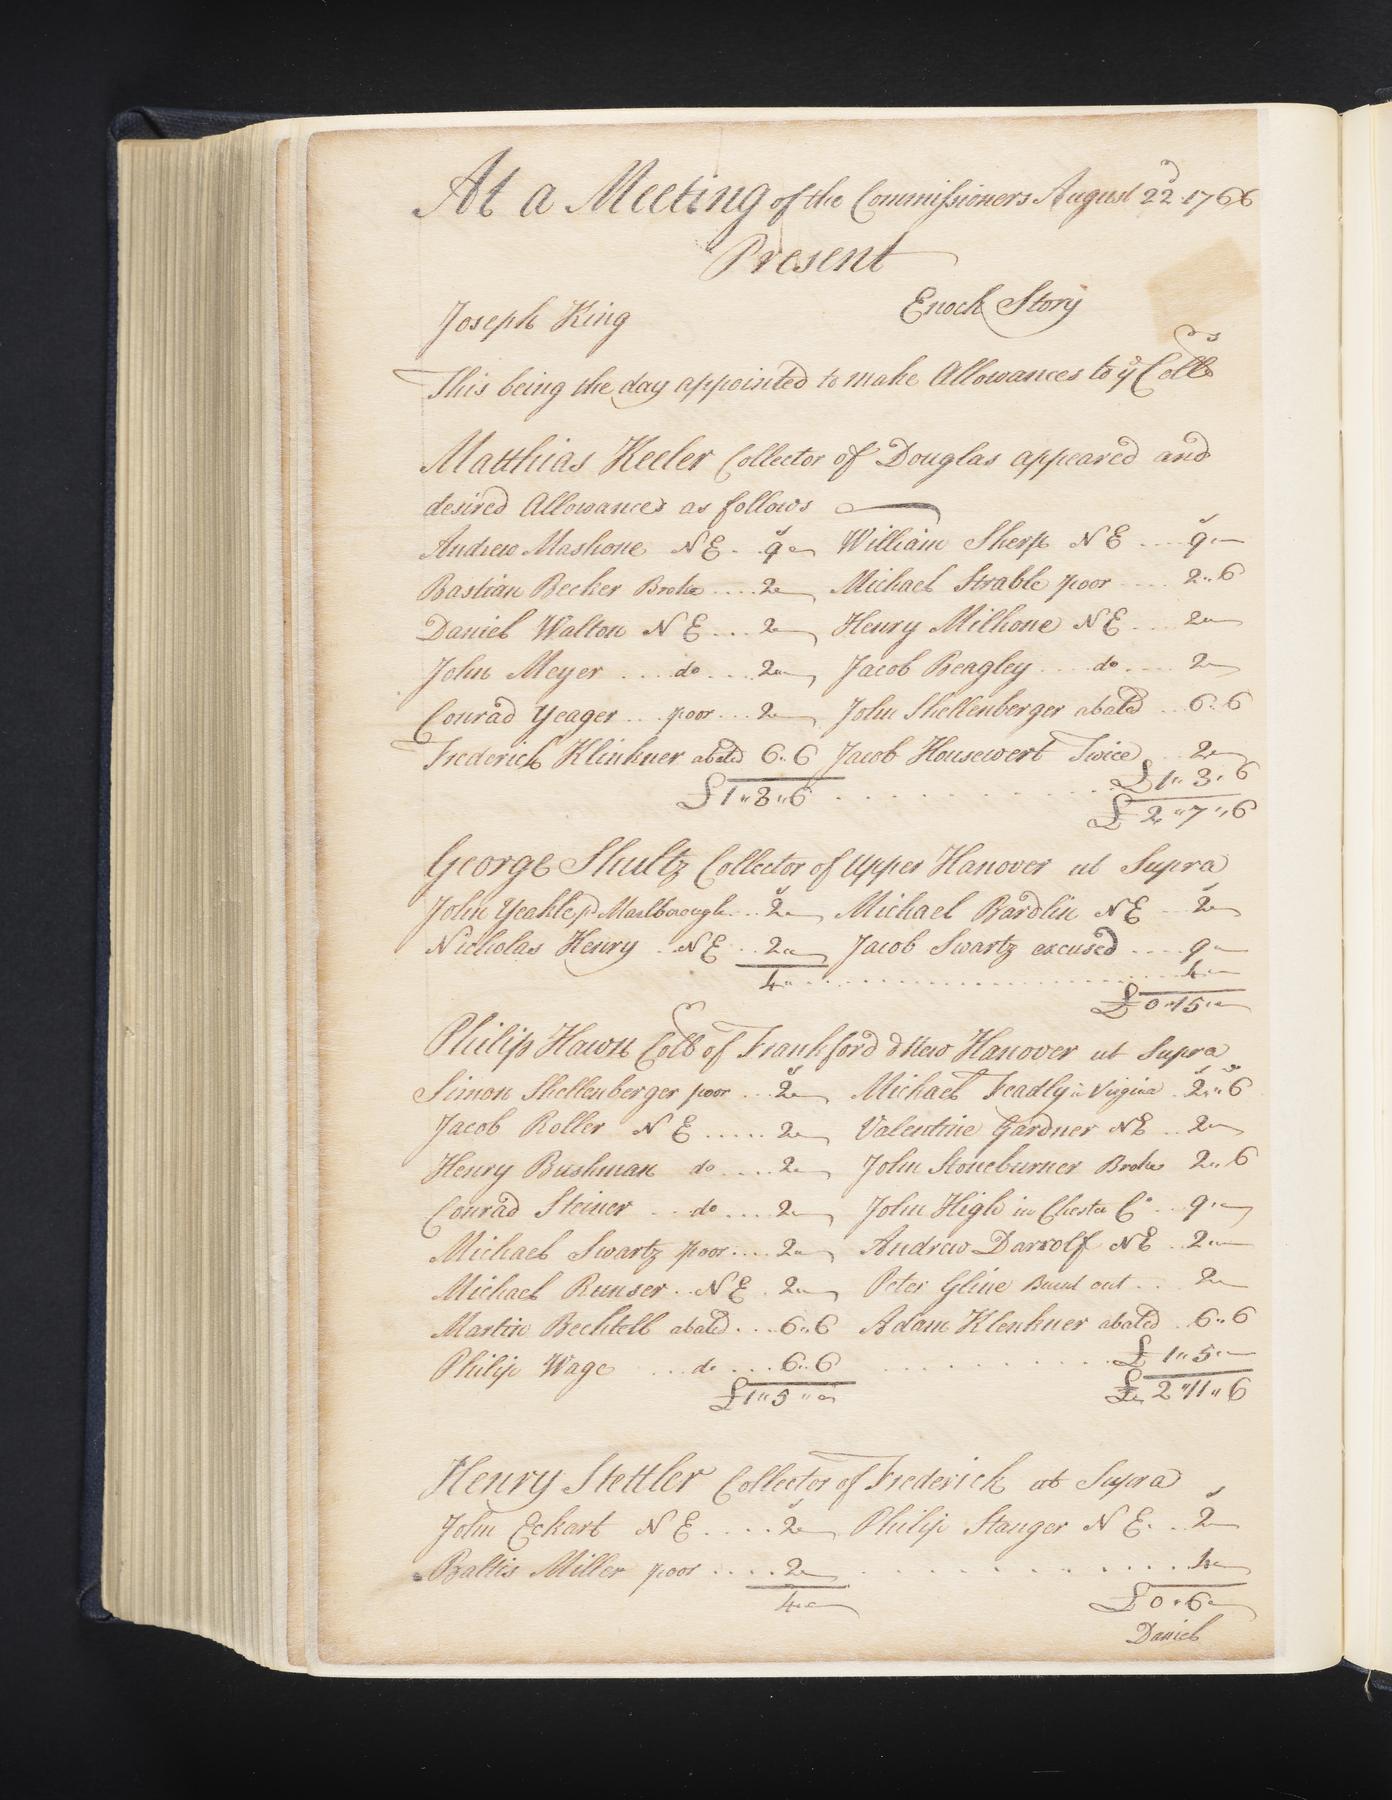 At a Meeting of the Commissioners August 22d 1766
Present
Joseph King Enoch Story
This being the day appointed to make Allowances to ye Collrs
Matthias Keeler Collector of Douglas appeared and
desired Allowances as follows
Andrew Mashone NE .. 9 s William Sherp NE .... 9
Bastian Becker Broke .... 2 Michael Strable poor .... 2..6
Daniel Walton NE .... 2 Henry Milhone NE .... 2
John Meyer .... do .... 2 Jacob Beagley .... do .... 2
Conrad Yeager ... poor ... 2 John Shellenberger abated ... 6..6
Frederick Klinkner abated 6..6 Jacob Housewert Twice .. 2
£1..3..6 £1..3..6
£2..7..6
George Shultz Collector of Upper Hanover ut Supra
John Yeakle pd Marlborough ... 2 Michael Bardlin NE ... 2
Nicholas Henry .. NE .. 2 Jacob Swartz excused .... 9
4 4
£0..15
Philip Hawn Collr of Frankford & New Hanover ut Supra
Simon Shellenberger poor ... 2 Michael Feadly in Virginia .. 2..6
Jacob Roller NE ..... 2 Valentine Gardner NE .. 2
Henry Bushman do .... 2 John Stoneburner Broke 2..6
Conrad Steiner ... do .... 2 John High in Chester Co .. 9
Michael Swartz poor .... 2 Andrew Darrolf NE .. 2
Michael Runser .. NE . 2 Peter Gline Burnt out ... 2
Martin Bechtell abated .... 6..6 Adam Klenkner abated . 6..6
Philip Wage .... do .... 6..6 £1..5
£1..5 £2..11..6
Henry Stettler Collector of Frederick ut Supra
John Eckart NE .... 2 Philip Stanger NE .. 2
Baltis Miller poor .... 2 4
4 £0..6
Daniel